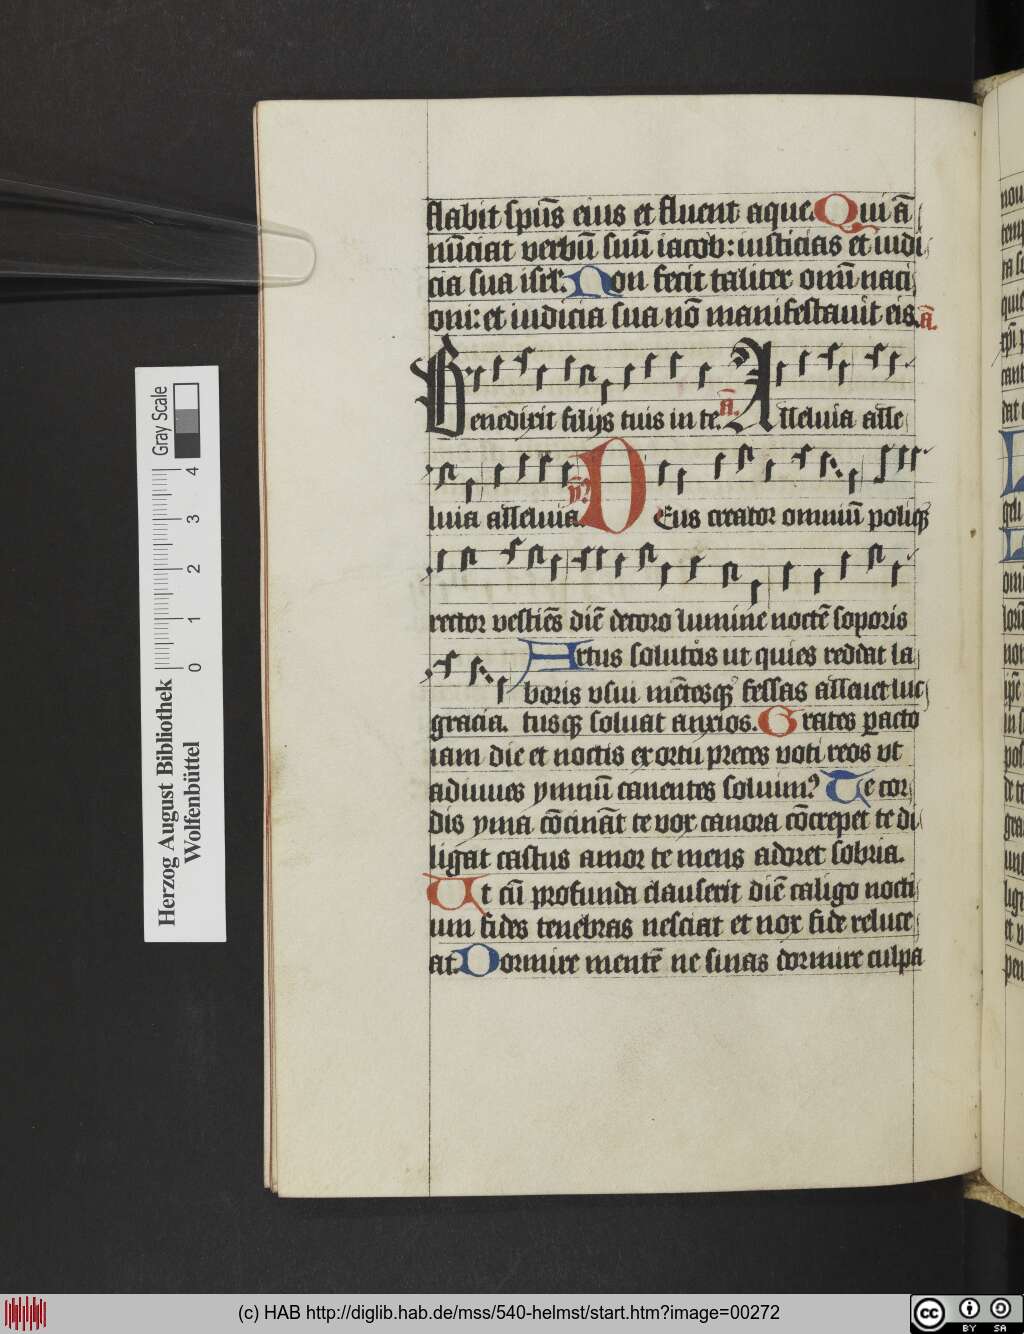 flabit spūs eius et fluent aque. Qui ā
nūciat verbū suū iacob: iusticias et iudi
cia sua isrl. Non fecit taliter omni naci
oni: et iudicia sua nō manifestauit eis. ā.
Benedixit filijs tuis in te. ā. Alleluia alle
luia alleluia. DEus creator omniū poliq
rector vestiēs diē decoro lumine noctē soporis
Artus solutos ut quies reddat la
gracia. boris usui mētesq fessas alleuet luc
tusq soluat anxios. Grates pacto
iam die et noctis exortu preces voti reos ut
adiuues ymnū canentes soluim9 Te cor
dis yma cōcināt te vox canora cōcrepet te di
ligat castus amor te mens adoret sobria.
Ut cū profunda clauserit diē caligo nocti
um fides tenebras nesciat et nox fide reluce
at. Dormire mentē ne sinas dormire culpa
Gray Scale
0 1 2 3 4
Herzog August Bibliothek
Wolfenbüttel
(c) HAB http://diglib.hab.de/mss/540-helmst/start.htm?image=00272
cc BY SA